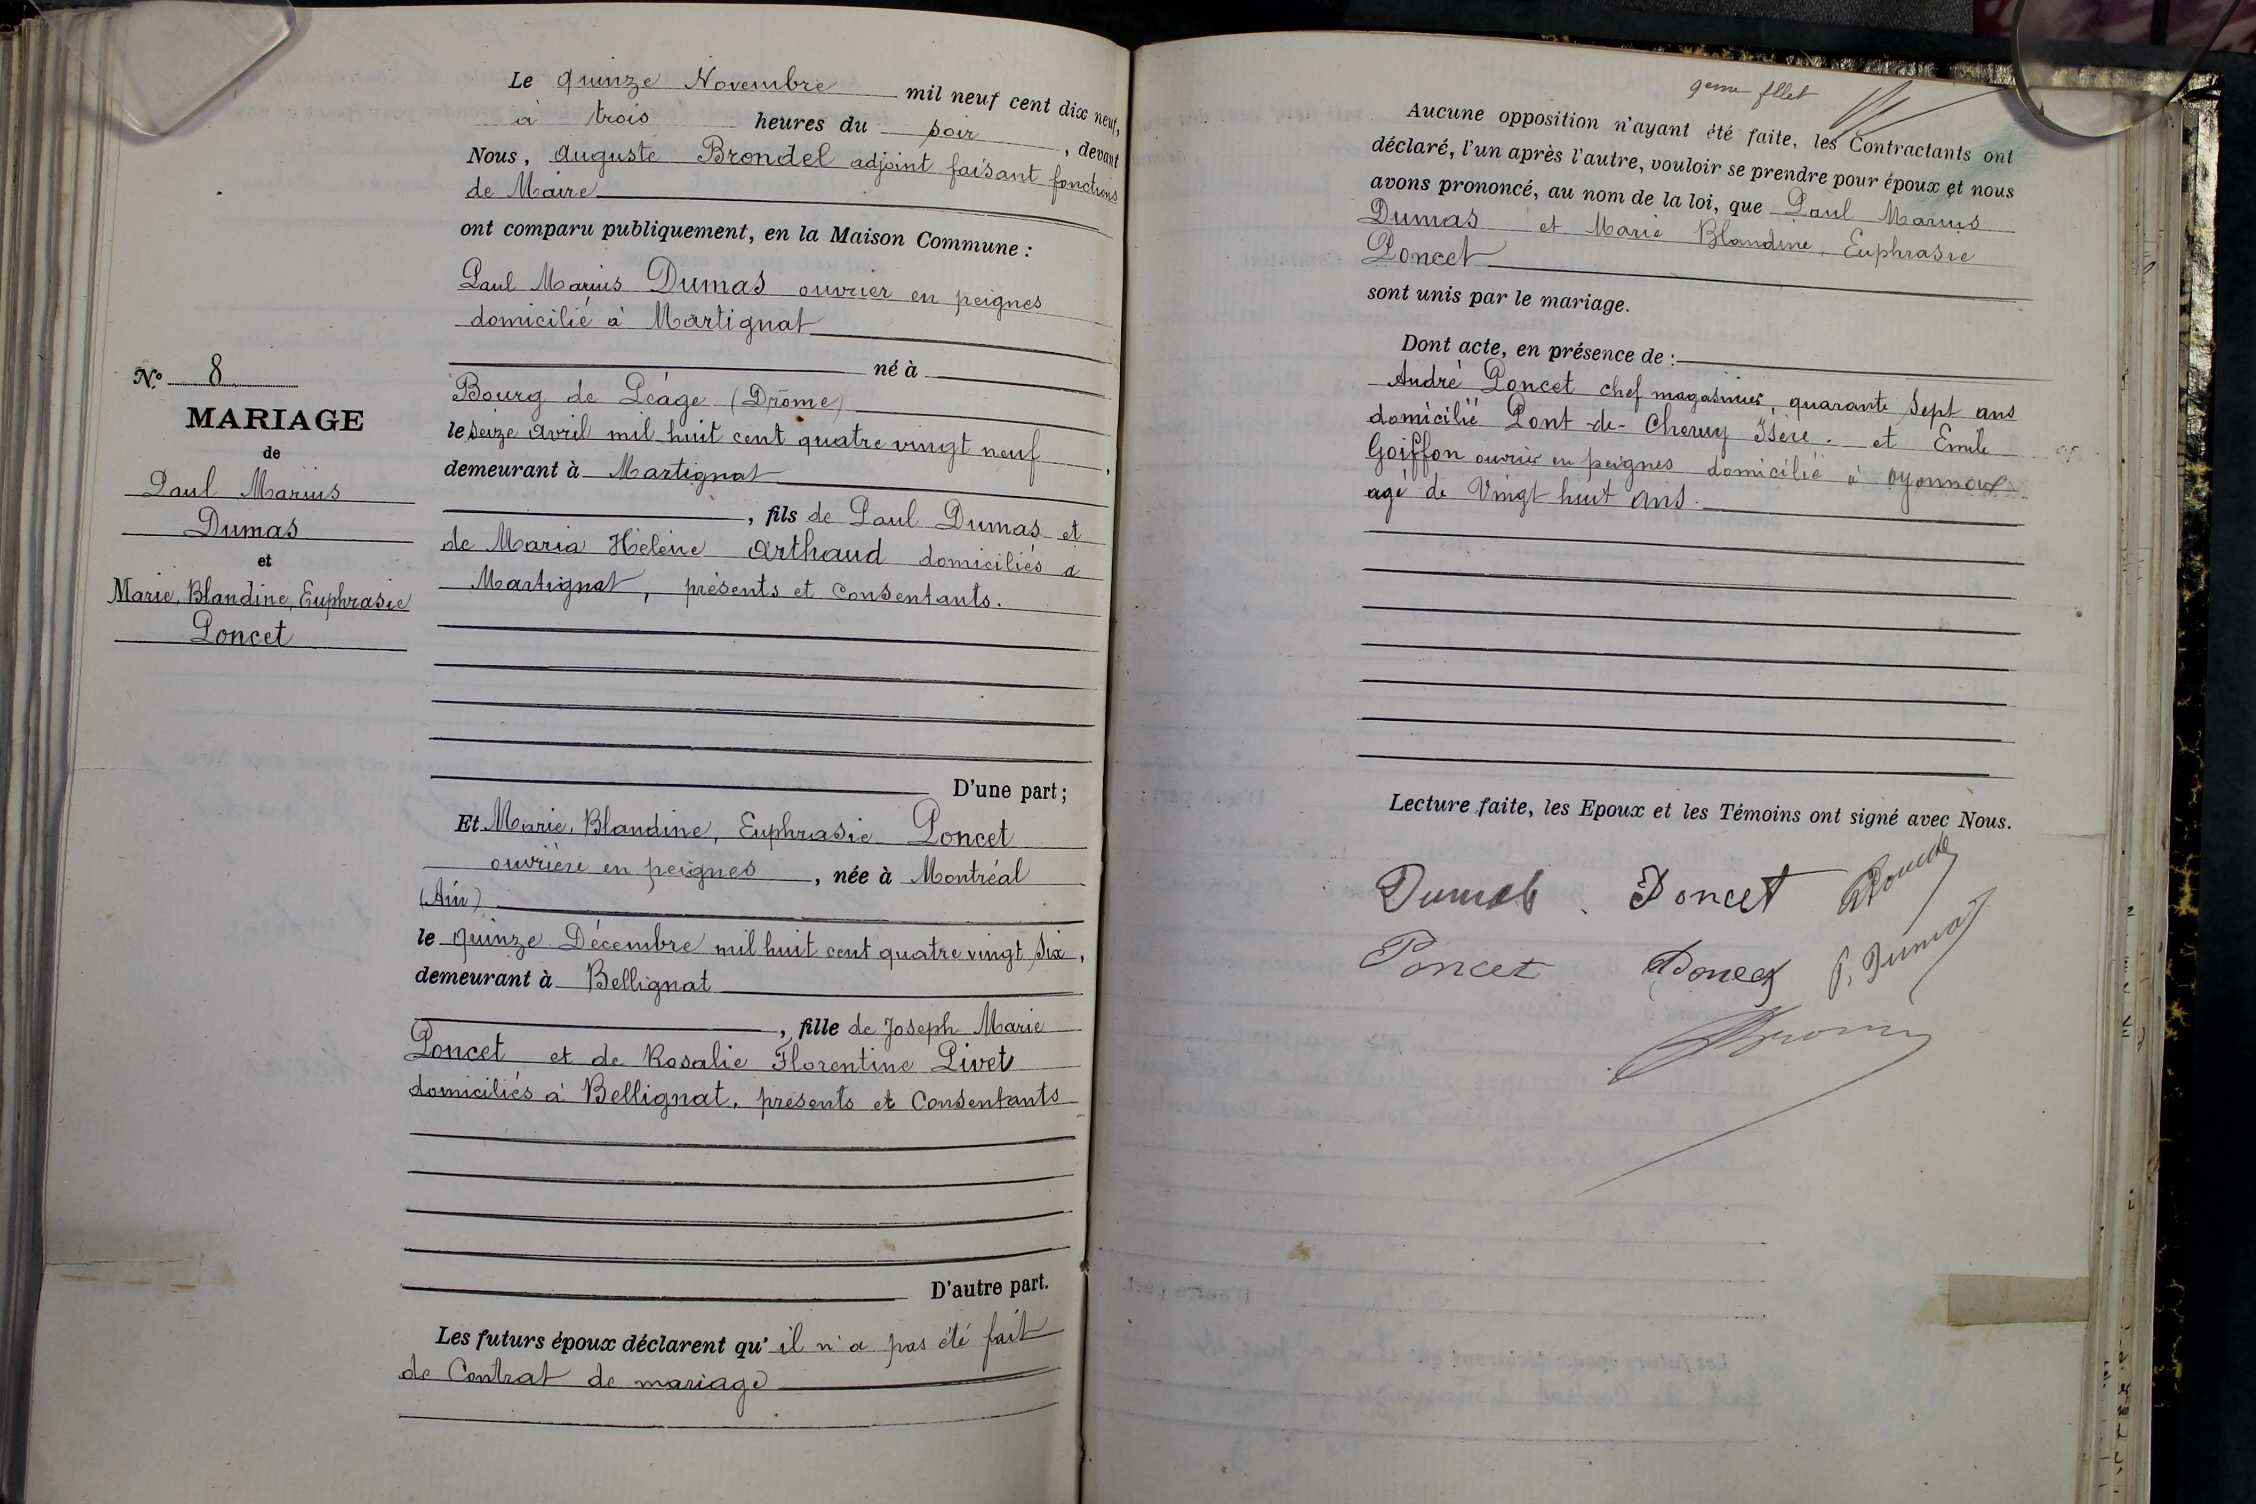 N.º 8
MARIAGE
de
Paul Marius
Dumas
et
Marie, Blandine, Euphrasie
Poncet
Le quinze Novembre mil neuf cent dix neuf,
à trois heures du soir, devant
Nous, Auguste Brondel adjoint faisant fonctions
de Maire
ont comparu publiquement, en la Maison Commune :
Paul Marius Dumas ouvrier en peignes
domicilié à Martignat
né à
Bourg de Péage (Drôme)
le seize avril mil huit cent quatre vingt neuf,
demeurant à Martignat
, fils de Paul Dumas et
de Maria Hélène Arthaud domiciliés à
Martignat, présents et consentants.
D'une part ;
Et Marie, Blandine, Euphrasie Poncet
ouvrière en peignes, née à Montréal
(Ain)
le quinze Décembre mil huit cent quatre vingt six,
demeurant à Bellignat
, fille de Joseph Marie
Poncet et de Rosalie Florentine Pivet
domiciliés à Bellignat, présents et Consentants
D'autre part.
Les futurs époux déclarent qu'il n'a pas été fait
de Contrat de mariage
9eme fllet
Aucune opposition n'ayant été faite, les Contractants ont
déclaré, l'un après l'autre, vouloir se prendre pour époux et nous
avons prononcé, au nom de la loi, que Paul Marius
Dumas et Marie Blandine, Euphrasie
Poncet
sont unis par le mariage.
Dont acte, en présence de :
André Poncet chef magasinier, quarante sept ans
domicilié Pont-de-Cheruy Isère. et Emile
Goiffon ouvrier en peignes domicilié à Oyonnax
agé de Vingt huit ans.
Lecture faite, les Epoux et les Témoins ont signé avec Nous.
Dumas Poncet
Poncet Poncet P. Dumas